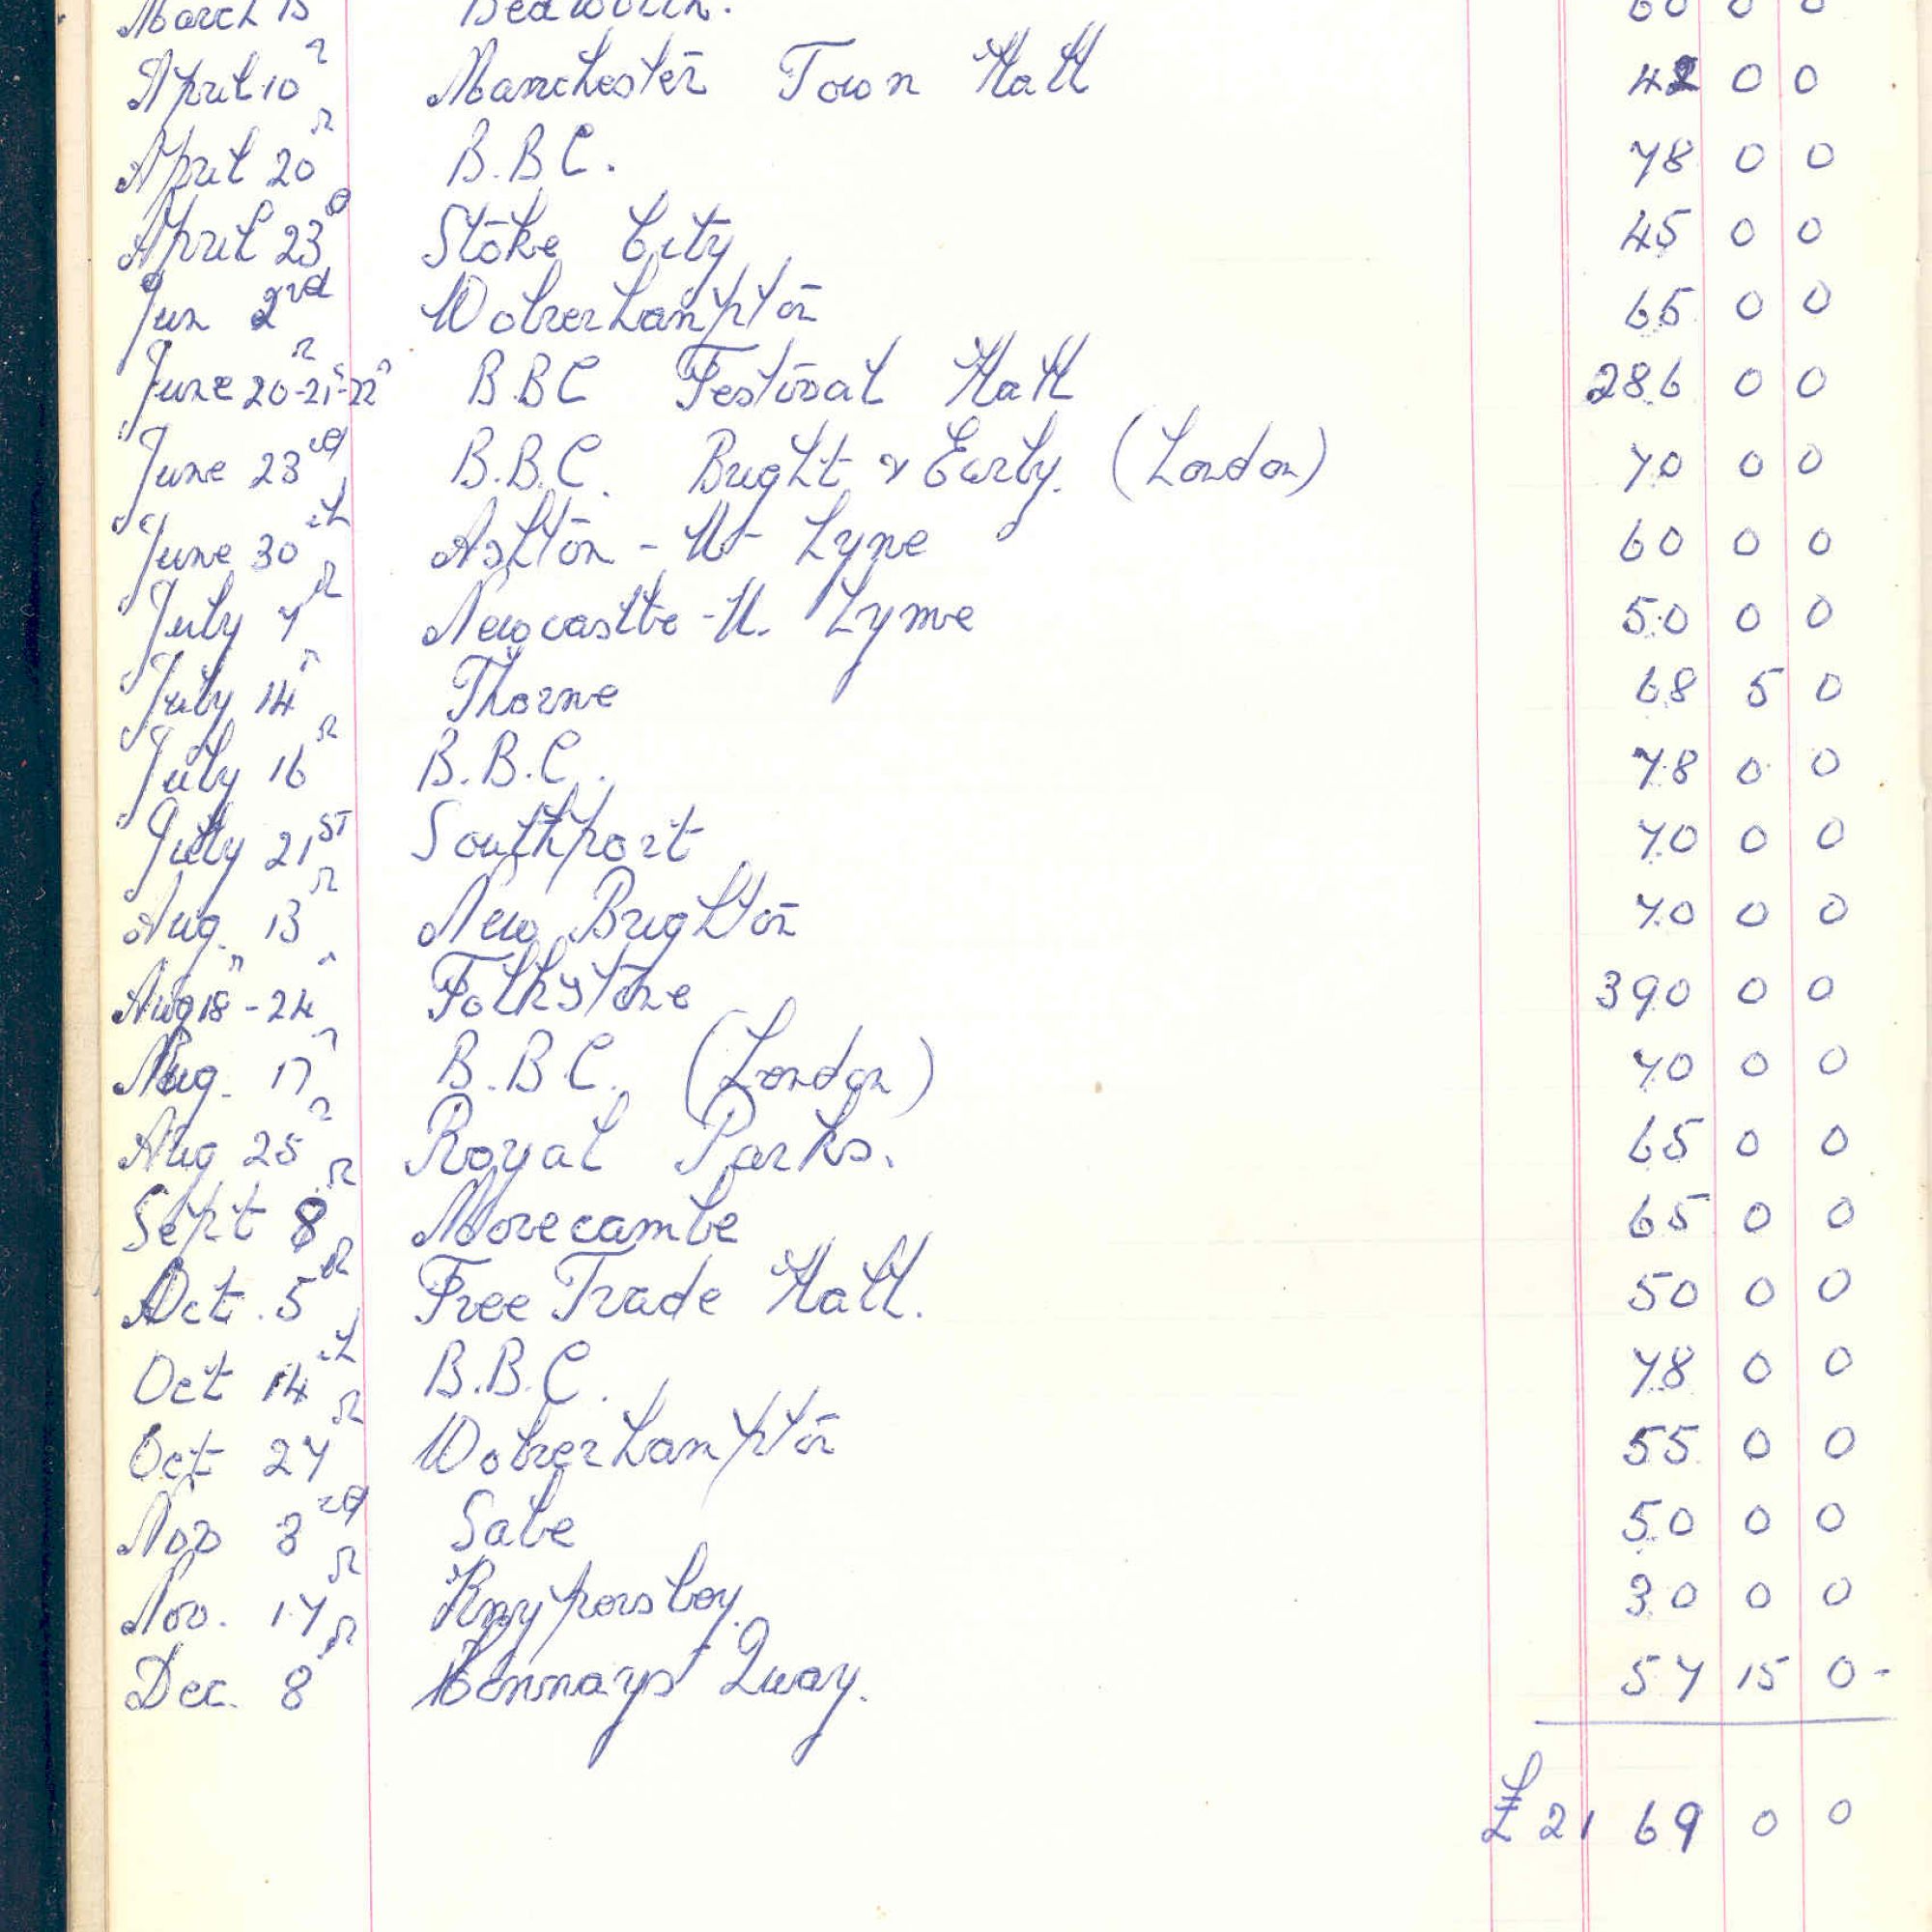 March 13 Bedworth. 60 0 0
April 10th Manchester Town Hall 42 0 0
April 20th B.B.C. 78 0 0
April 23rd Stoke City 45 0 0
Jun 2nd Wolverhampton 65 0 0
June 20-21st-22nd B.B.C Festival Hall 286 0 0
June 23rd B.B.C. Bright & Early. (London) 70 0 0
June 30th Ashton - U - Lyne 60 0 0
July 7th Newcastle - U. Lyme 50 0 0
July 14th Thorne 68 5 0
July 16th B.B.C. 78 0 0
July 21ST Southport 70 0 0
Aug. 13th New Brighton 70 0 0
Aug 18th - 24th Folkstone 390 0 0
Aug. 17th B.B.C. (London) 70 0 0
Aug 25th Royal Parks. 65 0 0
Sept 8th Morecambe 65 0 0
Oct. 5th Free Trade Hall. 50 0 0
Oct 14th B.B.C. 78 0 0
Oct 27th Wolverhampton 55 0 0
Nov 3rd Sale 50 0 0
Nov. 17th Knypersley. 30 0 0
Dec. 8th Connays Quay. 57 15 0-
£2169 0 0